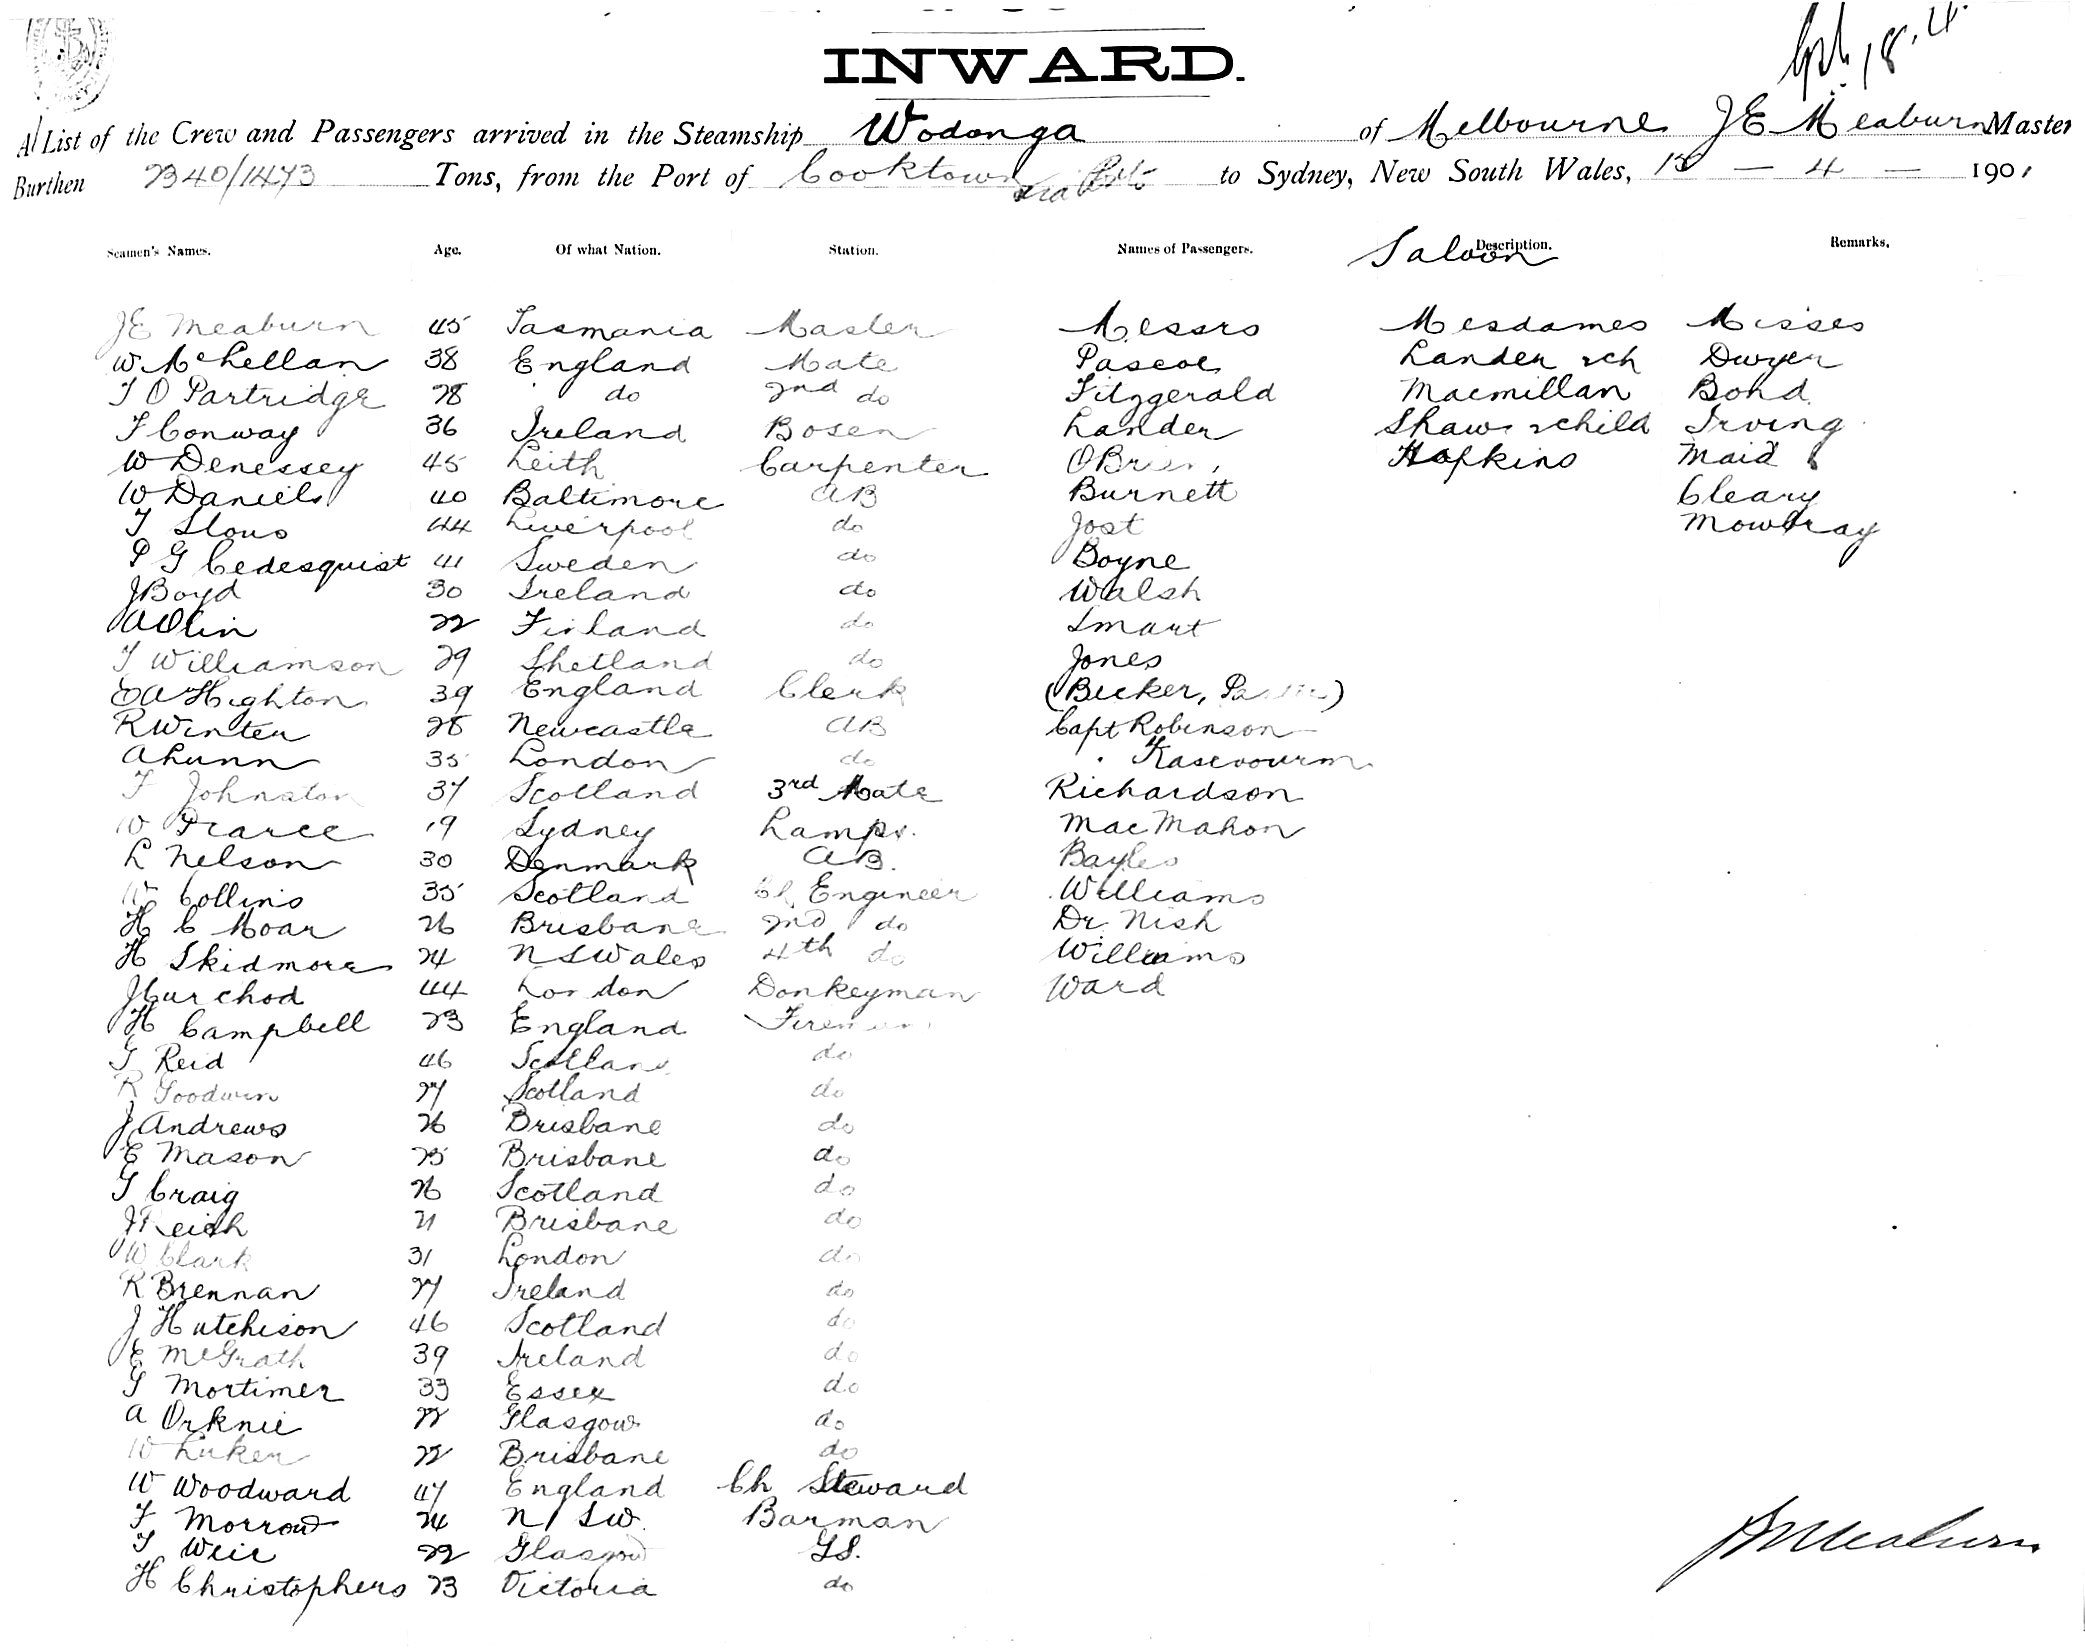 INWARD.
A List of the Crew and Passengers arrived in the Steamship Wodonga of Melbourne J E Meaburn Master
Burthen 2340/1473 Tons, from the Port of Cooktown via Ports to Sydney, New South Wales, 15 - 4 - 1901
Seamen's Names. Age. Of what Nation. Station. Names of Passengers. Saloon Description. Remarks.
JE Meaburn 45 Tasmania Master Messrs Mesdames Misses
W McLellan 38 England Mate Pascoe Lander & ch Dwyer
T O Partridge 28 do 2nd do Fitzgerald Macmillan Bond
T Conway 36 Ireland Bosen Lander Shaw & child Irving
W Denessey 45 Leith Carpenter OBrien Hopkins Maid
W Daniels 40 Baltimore AB Burnett Cleary
T Slous 44 Liverpool do Jost Mowbray
P G Cedesquist 41 Sweden do Boyne
J Boyd 30 Ireland do Walsh
A Olin 22 Finland do Smart
T Williamson 29 Shetland do Jones
E A Highton 39 England Clerk (Becker,
R Winter 28 Newcastle AB Capt Robinson
A Lunn 35 London do "
F Johnston 37 Scotland 3rd Mate Richardson
W Pearce 19 Sydney Lamps. MacMahon
L Nelson 30 Denmark AB. Bayles
W Collins 35 Scotland Ch Engineer Williams
H C Moar 26 Brisbane 2nd do Dr. Nish
H Skidmore 24 N S Wales 4th do Williams
J Curchod 44 London Donkeyman Ward
H Campbell 23 England Fireman
G Reid 46 Scotland do
R Goodwin 27 Scotland do
J Andrews 26 Brisbane do
E Mason 25 Brisbane do
G Craig 26 Scotland do
J Reish 21 Brisbane do
W Clark 31 London do
R Brennan 27 Ireland do
J Hutchison 46 Scotland do
E McGrath 39 Ireland do
G Mortimer 33 Essex do
A Orknie 22 Glasgow do
W Luker 22 Brisbane do
W Woodward 47 England Ch Steward
F Morrow 24 N S W. Barman
T Weir 22 Glasgow GS.
H Christophers 23 Victoria do
J E Meaburn